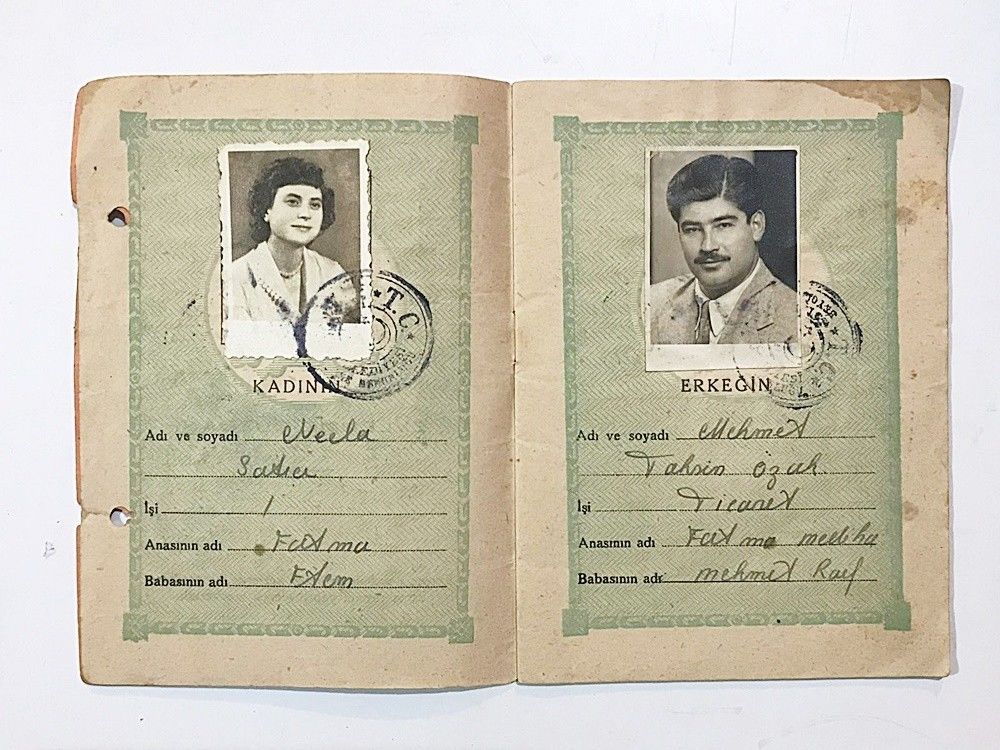 T. C.
KADININ
Adı ve soyadı Necla
Satıcı
İşi /
Anasının adı Fatma
Babasının adı Etem
T. C.
ERKEĞİN
Adı ve soyadı Mehmet
Tahsin Ozak
İşi Ticaret
Anasının adı Fatma mediha
Babasının adı mehmet Raif